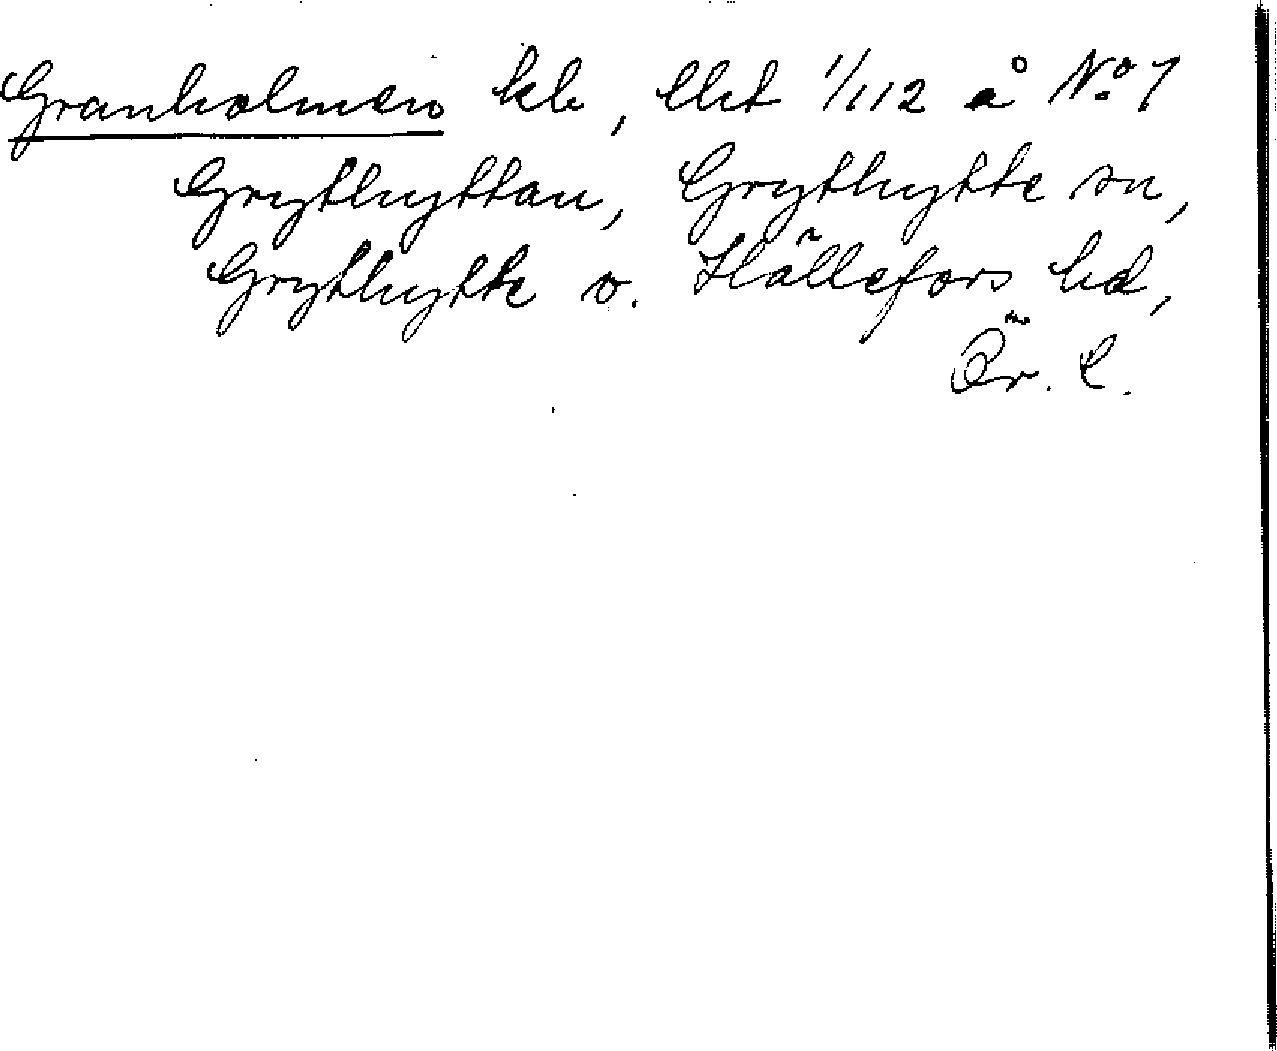 Granholmen hl, lht 1/112 å No 1
Grythyttan, Grythytte sn,
Grythytte o. Hällefors hd,
Ör. l.